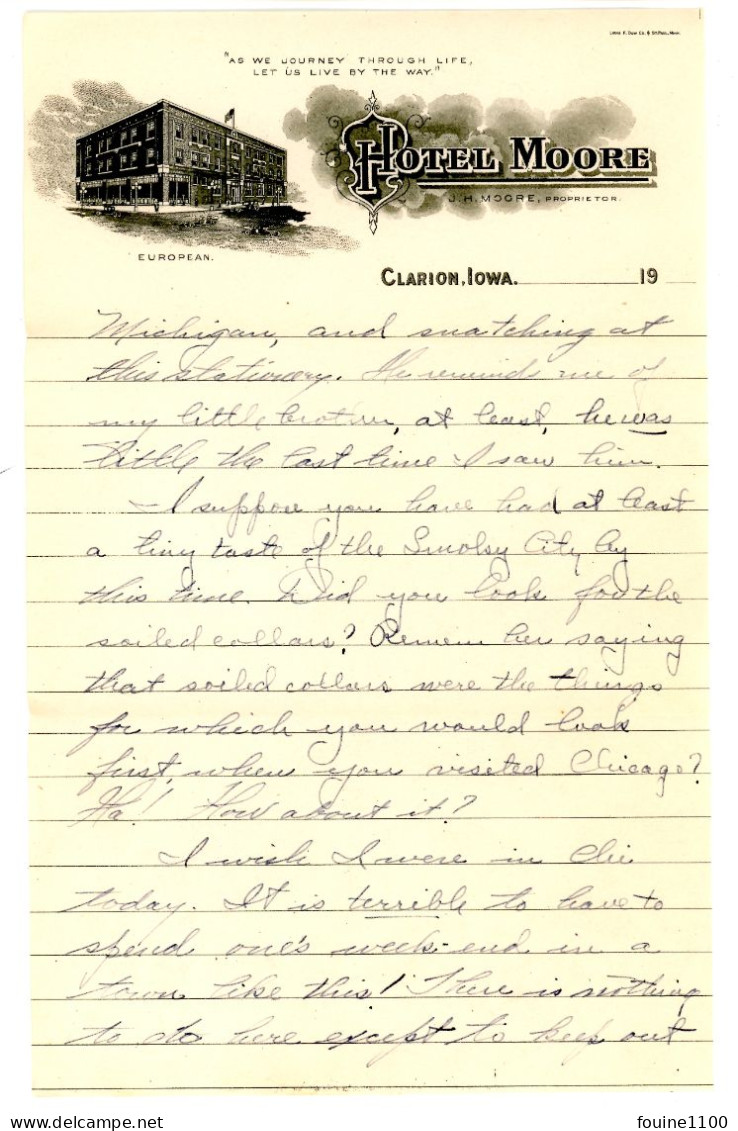 "AS WE JOURNEY THROUGH LIFE,
LET US LIVE BY THE WAY."
HOTEL MOORE
J. H. MOORE, PROPRIETOR.
EUROPEAN.
CLARION, IOWA. 19
Michigan, and snatching at
this stationery. He reminds me of
my little brother, at least, he was
little the last time I saw him.
I suppose you have had at least
a tiny taste of the Smoky City by
this time. Did you look for the
soiled collars? Remember saying
that soiled collars were the things
for which you would look
first, when you visited Chicago?
Ha! How about it?
I wish I were in Chi
today. It is terrible to have to
spend one's week-end in a
town like this! There is nothing
to do here except to keep out
fouine1100